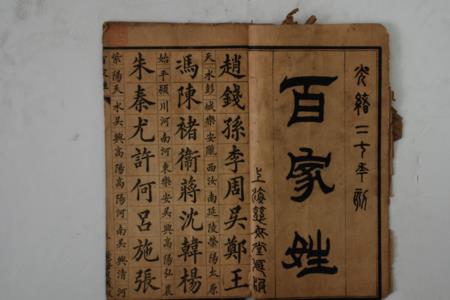 光緒二
百家姓
上海
趙錢孫李周吳鄭王
天水彭城樂安隴西汝南延陵滎陽太原
馮陳褚衛蔣沈韓楊
始平潁川河南河東樂安吳興弘農
朱秦尤許何呂施張
天水吳興高陽河南吳興清河